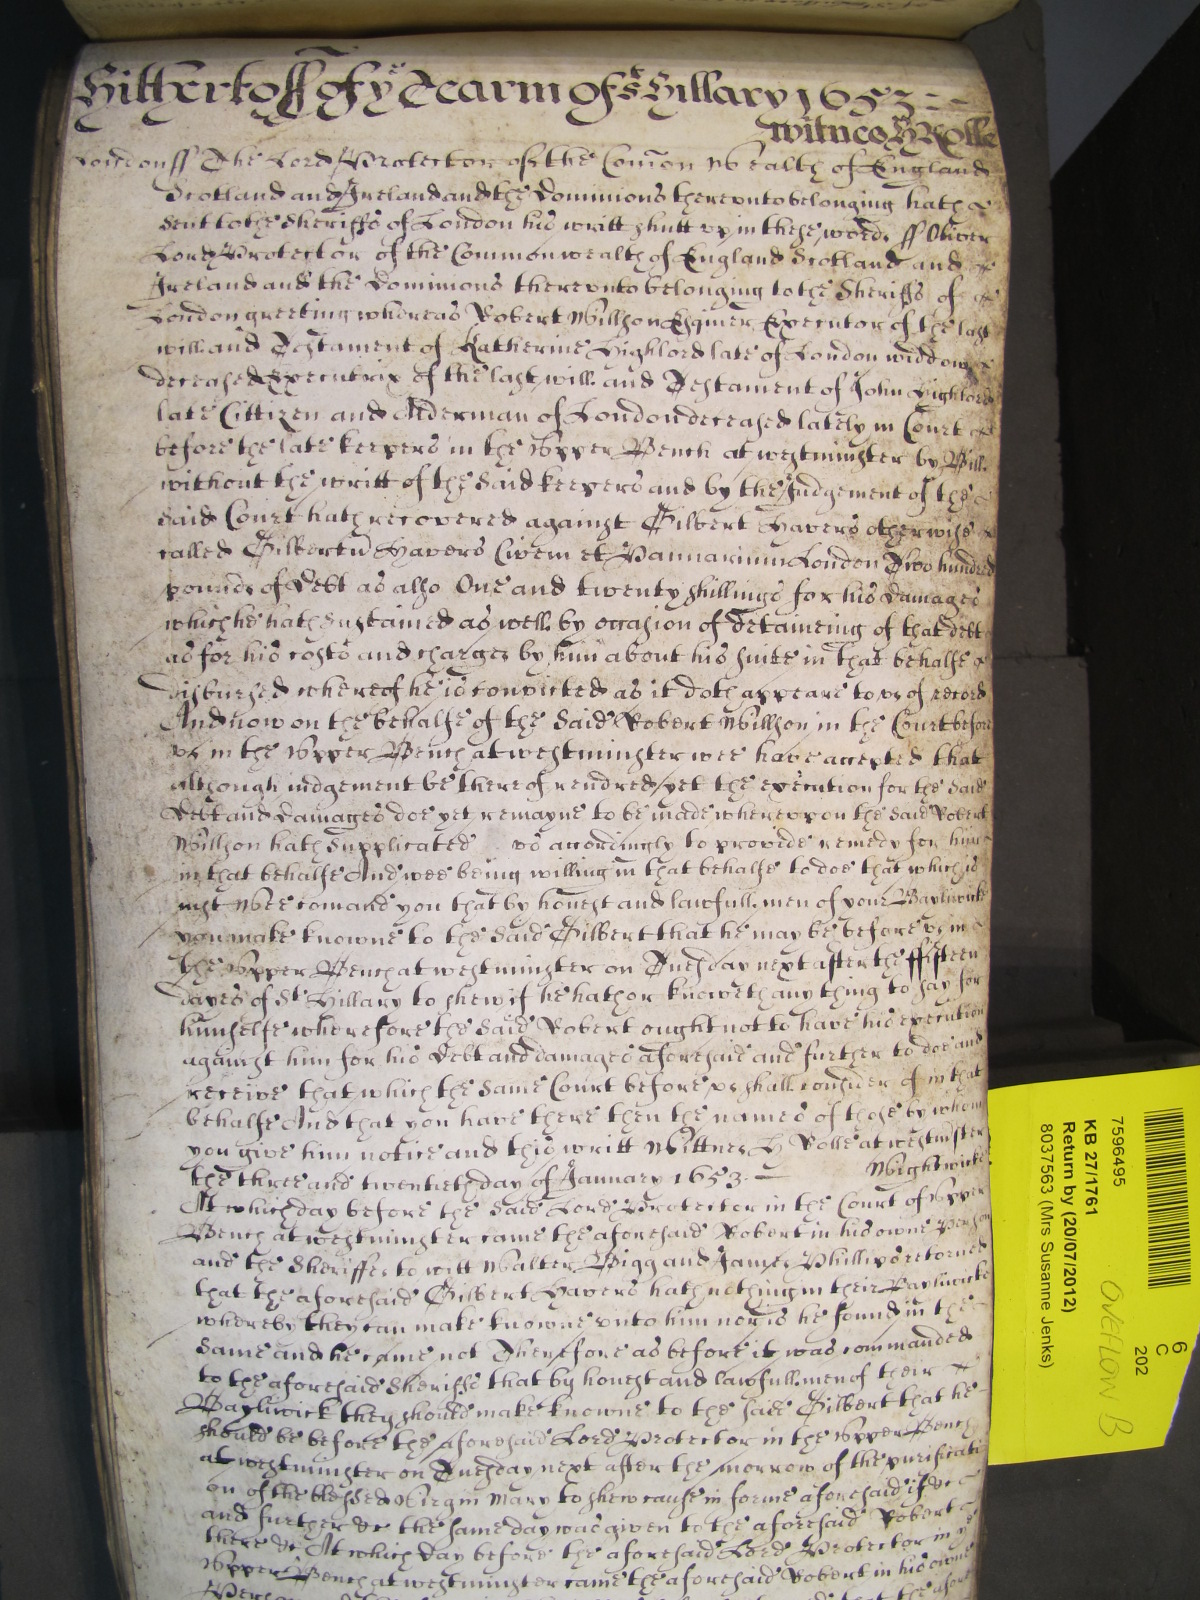 Hitherto ff of ye Tearm of St Hillary 1653
Witnes H Rolle
London ff The Lord Protector of the Comon Wealth of England
Scotland and Ireland and the Dominions thereunto belonging hath
sent to the Sheriffs of London his writt shutt up in these words ff Oliver
Lord Protector of the Commonwealth of England Scotland and
Ireland and the Dominions thereunto belonging to the Sheriffs of
London greeting whereas Robert Willson Executor of the last
will and Testament of Katherine Highlord late of London widdow
deceased Executrix of the last will and Testament of John Highlord
late Cittizen and Alderman of London deceased lately in Court
before the late keepers in the Upper Bench at westminster by Bill
without the writt of the said keepers and by the Judgement of the
said Court hath recovered against Gilbert Havers otherwise
called Gilbertu Havers Civem et Pannarium London Two hundred
pounds of Debt as also One and twenty shillings for his Damages
which he hath sustained as well by occasion of detaineing of that debt
as for his costs and charges by him about his suite in that behalfe
disbursed whereof he is convicted as it doth appeare to us of record
And now on the behalfe of the said Robert Willson in the Court before
us in the Upper Bench at westminster wee have accepted that
although iudgement be thereof rendred yet the execution for the said
Debt and Damages doe yet remayne to be made whereupon the said Robert
Willson hath supplicated us accordingly to provide remedy for him
in that behalfe And wee being willing in that behalfe to doe that which is
iust Wee comand you that by honest and lawfull men of your Bayliwick
you make knowne to the said Gilbert that he may be before us in
the Upper Bench at westminster on Tuesday next after the fifteen
dayes of St Hillary to shew if he hath or knoweth any thing to say for
himselfe wherefore the said Robert ought not to have his execution
against him for his Debt and damages aforesaid and further to doe and
receive that which the same Court before us shall consider of in that
behalfe And that you have there then the names of those by whom
you give him notice and this writt Wittnes H Rolle at westminster
the three and twentieth day of January 1653 Wightwicke
At which day before the said Lord Protector in the Court of Upper
Bench at westminster came the aforesaid Robert in his owne Person
and the Sheriffes to witt Walter Bigg and James Phillips retorned
that the aforesaid Gilbert Havers hath nothing in their Bayliwicke
whereby they can make knowne unto him nor is he found in the
same and he came not Therefore as before it was commanded
to the aforesaid Sheriffs that by honest and lawfull men of their
Baylwick they should make knowne to the said Gilbert that he
should be before the aforesaid Lord Protector in the Upper Bench
at westminster on Tuesday next after the morrow of the purificati
on of the blessed Virgin Mary to shew cause in forme aforesaid if &c
and further &c the same day was given to the aforesaid Robert
there &c At which day before the aforesaid Lord Protector in ye
Upper Bench at westminster came the aforesaid Robert in his owne
Person
7596495
KB 27/1761
Return by (20/07/2012)
8037563 (Mrs Susanne Jenks)
6
C
202
OVEFLOW B